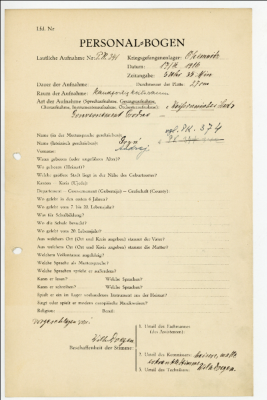 Lfd. Nr.
PERSONAL-BOGEN
Lautliche Aufnahme Nr.: P.K. 741
Kriegsgefangenenlager:
Datum:
Zeitangabe:
Dauer der Aufnahme:
Durchmesser der Platte: 27 cm
Raum der Aufnahme:
Art der Aufnahme (Sprechaufnahme, Gesangsaufnahme,
Choraufnahme, Instrumentenaufnahme, Orchesteraufnahme):
Gouvernement
vgl. P.K. 374
Name (in der Muttersprache geschrieben):
Name (lateinisch geschrieben):
Vorname:
Wann geboren (oder ungefähres Alter)?
Wo geboren (Heimat)?
Welche größere Stadt liegt in der Nähe des Geburtsortes?
Kanton — Kreis (Ujedz):
Department — Gouvernement (Gubernija) — Grafschaft (County):
Wo gelebt in den ersten 6 Jahren?
Wo gelebt vom 7. bis 20. Lebensjahr?
Was für Schulbildung?
Wo die Schule besucht?
Wo gelebt vom 20. Lebensjahr?
Aus welchem Ort (Ort und Kreis angeben) stammt der Vater?
Aus welchem Ort (Ort und Kreis angeben) stammt die Mutter?
Welchem Volksstamm angehörig?
Welche Sprache als Muttersprache?
Welche Sprachen spricht er außerdem?
Kann er lesen? Welche Sprachen?
Kann er schreiben? Welche Sprachen?
Spielt er ein im Lager vorhandenes Instrument aus der Heimat?
Singt oder spielt er moderne europäische Musikweisen?
Religion: Beruf:
vorgeschlagen von:
Wilh. Doegen
Beschaffenheit der Stimme:
1. Urteil des Fachmannes
(des Assistenten):
2. Urteil des Kommissars:
3. Urteil des Technikers: Wilh. Doegen